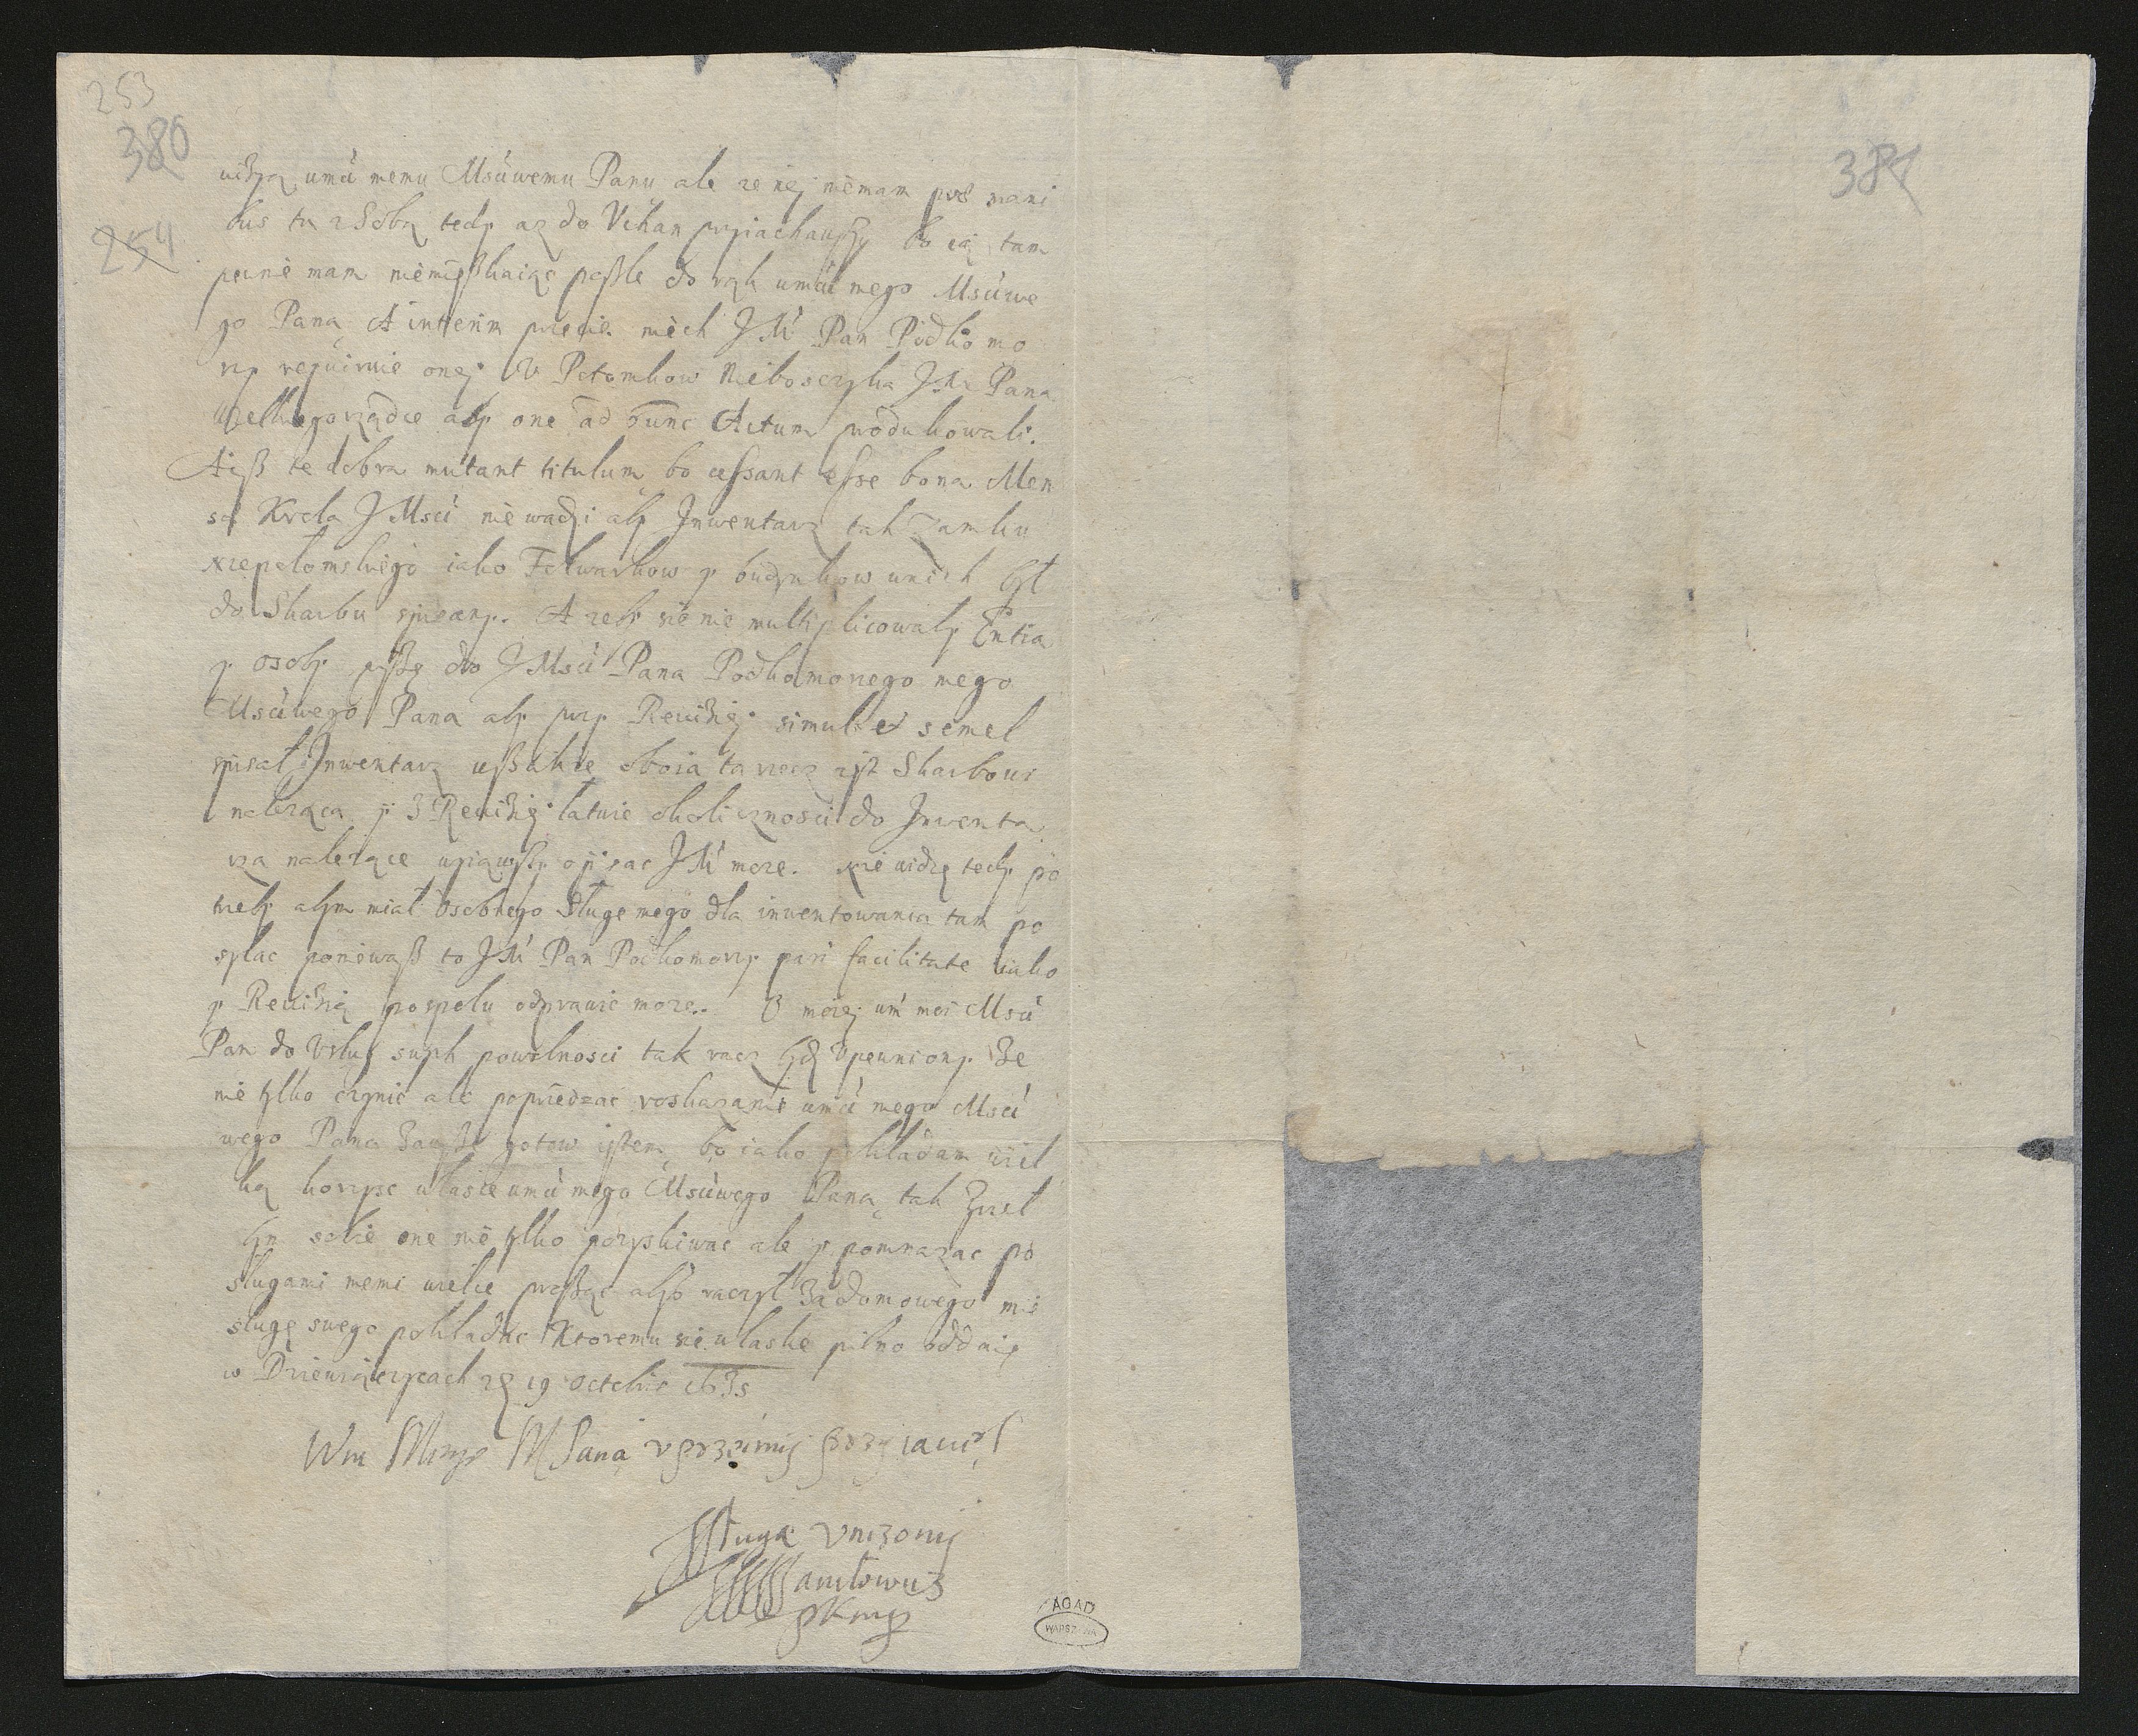 253
380
254
381
wizyą umći memu Msćiwemu Panu ale ze nej niemam prae mani
bus tu z Sobą tedy az do Vchan przyiachawszy bo ią tam
pewnie mam niemięszkaiąc poszle do rąk umći mego Msćiwe
go Pana A interim przecie niech JMć Pan Podkomo
rzy requiruie onej V Potomkow Nieboszczyka JMć Pana
Wielkogorządce aby one ad hunc Actum produkowali.
A isz te dobra mutant titulum bo cessant esse bona Men
sae Krola JMsći nie wadzi aby Inwentarz tak Zamku
Niepołomskiego iako Folwarkow y budynkow unich był
do Skarbu spisany. A zeby sie nie multiplicowały Entia
y osoby piszę do JMsći Pana Podkomorzego mego
Msćiwego Pana aby przy Rewizyej simul et semel
spisał Inwentarz uszakze oboia ta rzecz iest Skarbowi
nalezącą y z Rewizyej łatwie okolicznosci do Inwenta
rza nalezące wziąwszy opisac JMć moze. Nie widzę tedy po
trzeby abym miał osobnego Sługe mego dla inwentowania tam po
syłac poniewasz to JMć Pan Podkomorzy pari facilitate iako
y Rewizią pospołu odprawic moze. O mojej um moi Msći
Pan do Vsług swych powolnosci tak racz bydz Vpewniony Ze
nie tylko czynic ale poprzedzac roskazanie umći mego Msći
wego Pana Zawsze gotow iestem, bo iako pokładam wiel
ką korzysc w łasce umći mego Msćiwego Pana, tak Zycze
bym sobie one nie tylko pozyskiwac ale y pomnazac po
sługami memi wielce proszę abys raczył Za domowego mie
sługę swego pokładac Ktoremu sie w łaske pilno oddaię
w Drzewiczepcach 29 Octobris 1635
Wm Mmgo MPana vprzeimij przyiaciel
Sługa vnizonij
Daniłowicz
PKmp
AGAD
WARSZAWA